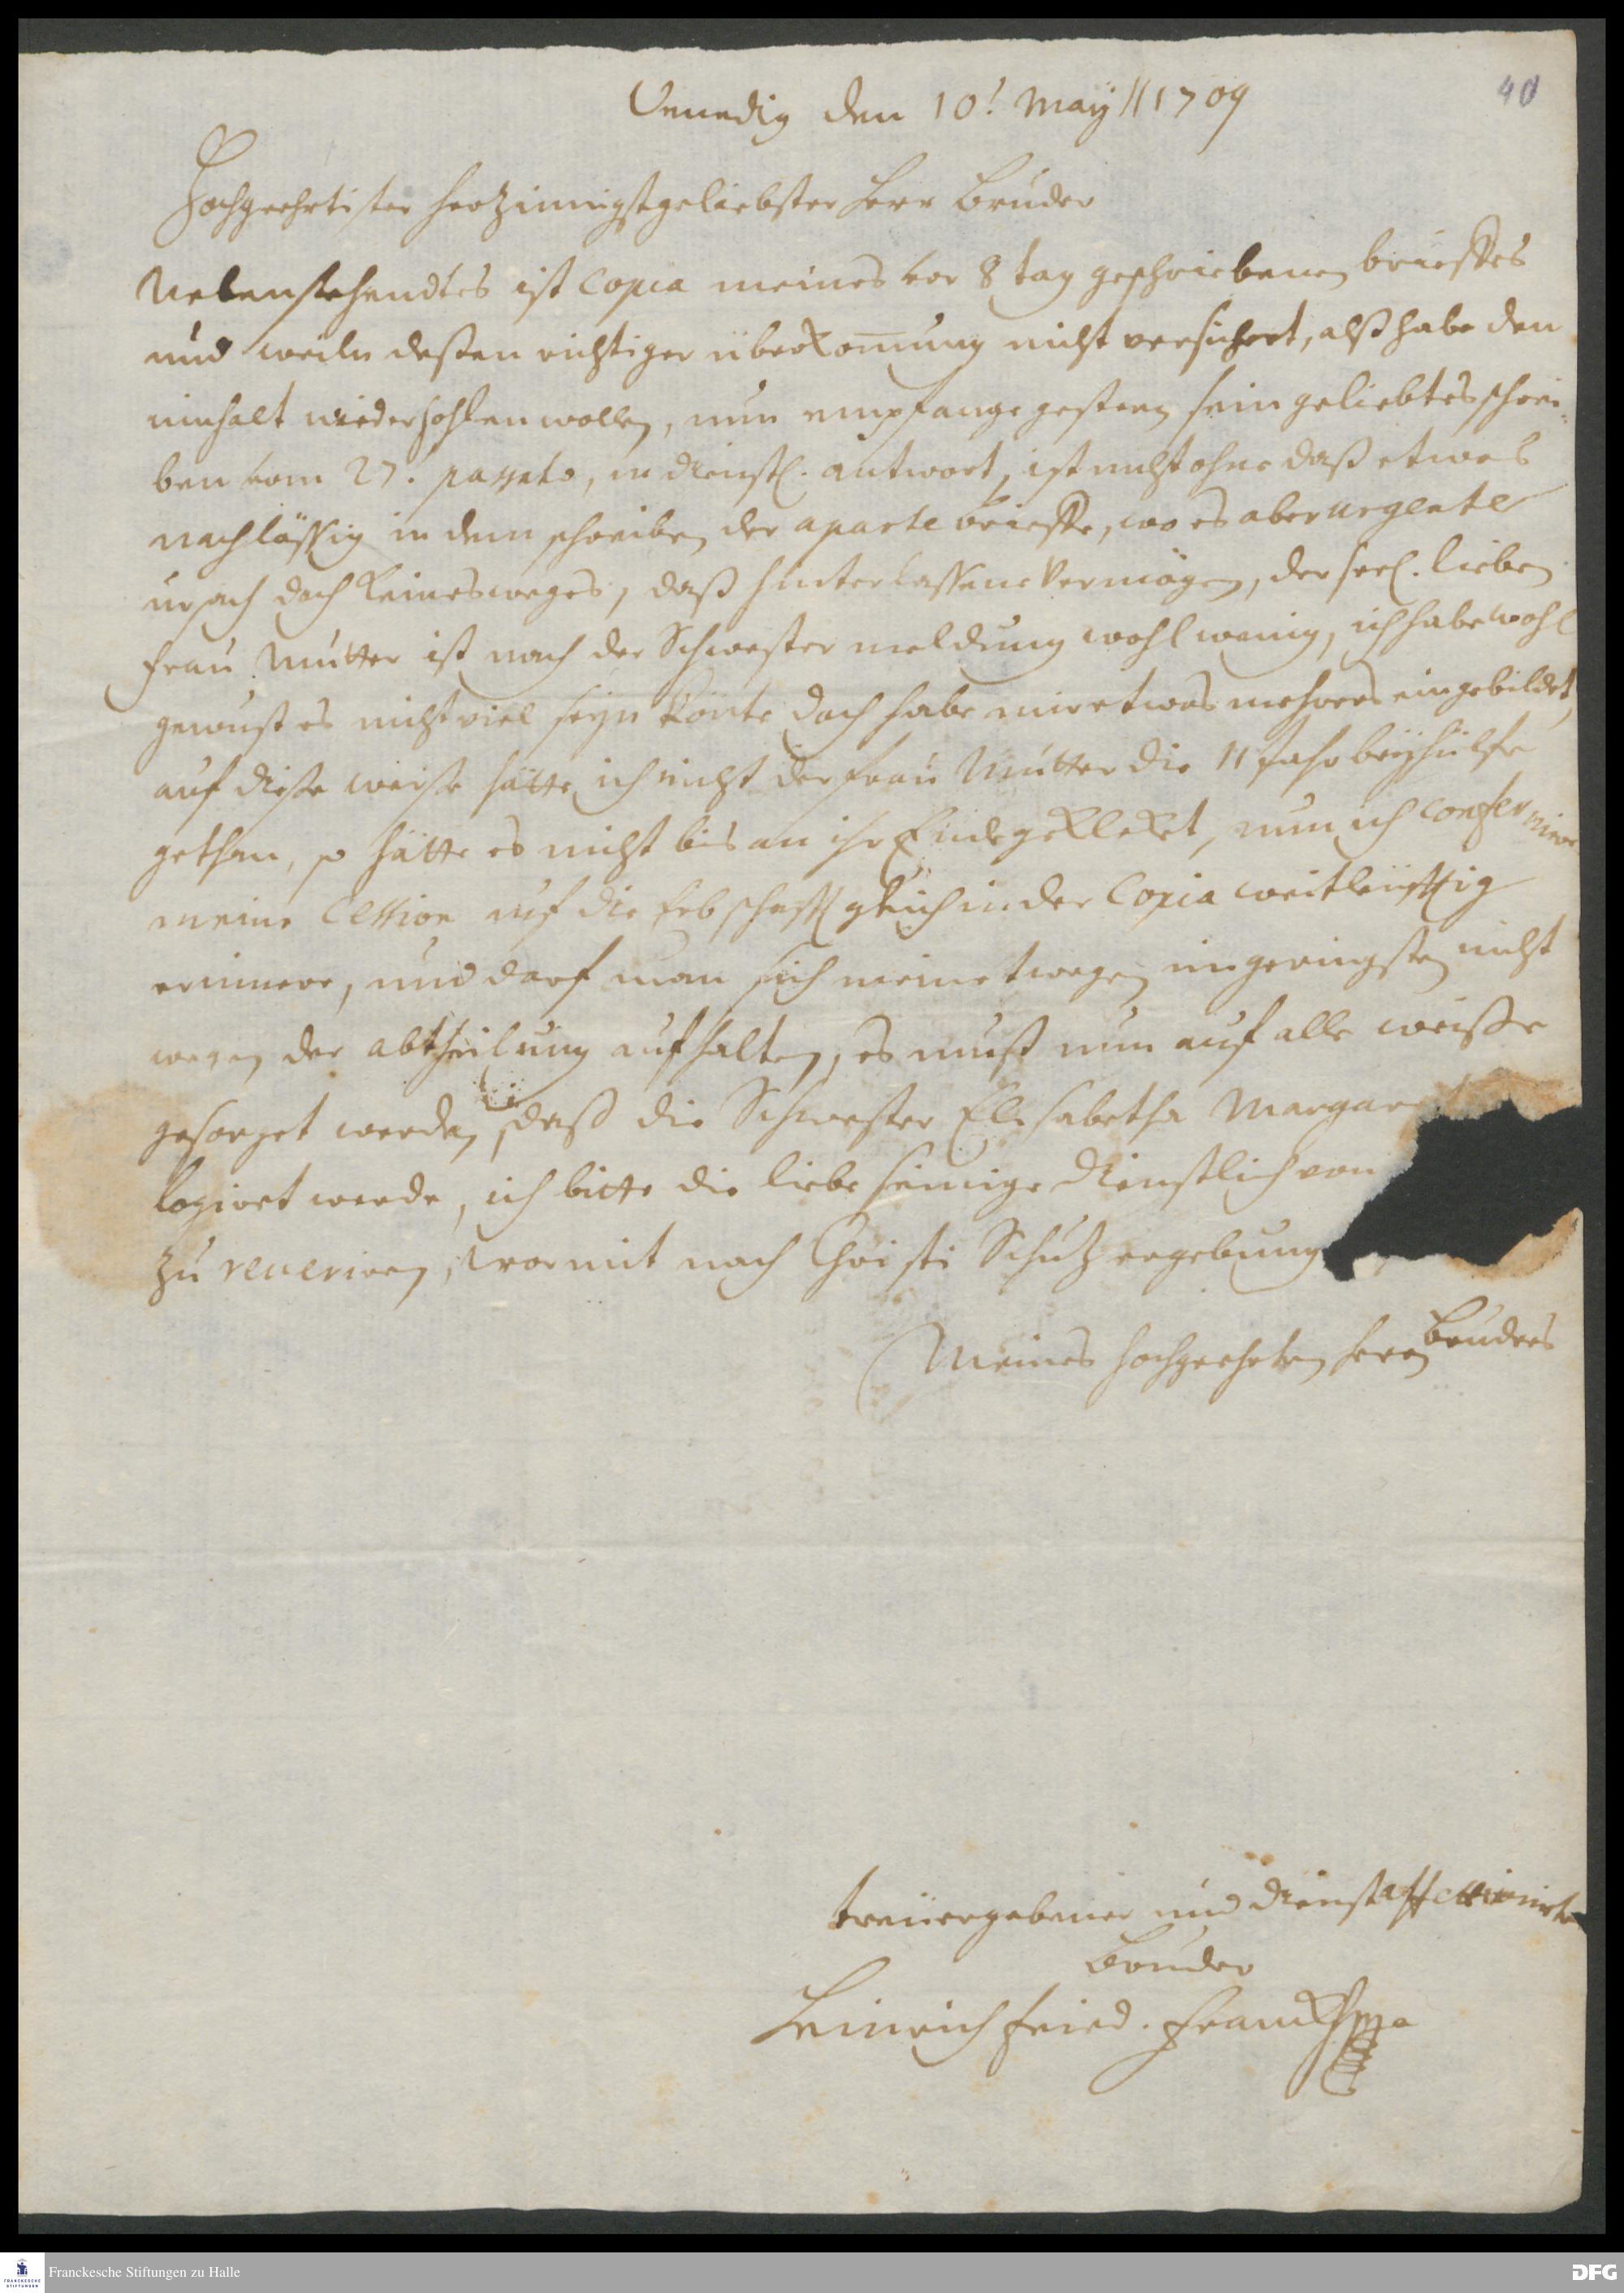 40
Venedig den 10! Maÿ // 1709
Hochgeehrtister herzinnigstgeliebster Herr Bruder
Nebenstehendtes ist Copia meines vor 8 tag geschriebenen brieffes
und weiln deßen richtiger überkom̄ung nicht versichert, alß habe den
innhalt wiederhohlen wollen, nun empfange gestern sein geliebtes schrei¬
ben vom 27. passato, in dienstl. antwort, ist nicht ohne daß etwas
nachlässig in dem schreiben der aparte brieffe, wo es aber urgente
ursach doch keinesweges, daß hinterlassene Vermögen, der seel. lieben
Frau Mutter ist nach der Schwester meldung wohl wenig, ich habe wohl
gewust es nicht viel seÿn könte doch habe mir etwas mehrers eingebildet,
auf diese weise hätte ich nicht der Frau Mutter die 11 Jahr beÿhülfe
gethan, so hätte es nicht bis an ihr Ende gekleket, nun ich confermire
meine Cession auf die Erbschafft gleich in der Copia weitleüfftig
erinnere, und darf man sich meinetwegen im geringsten nicht
wegen der abtheilung aufhalten, es muß nun auf alle weisse
gesorget werden, daß die Schwester Elisabetha Margar
logiret werde, ich bitte die liebe seinige dienstlich von
zu reveriren, wormit nach Christi Schutz ergebung
Meines hochgeehrten Herrn Bruders
treüergebener und dienstaffectionirter
Bruder
Heinrich Fried. Franck
FRANCKESCHE STIFTUNGEN
Franckesche Stiftungen zu Halle
DFG